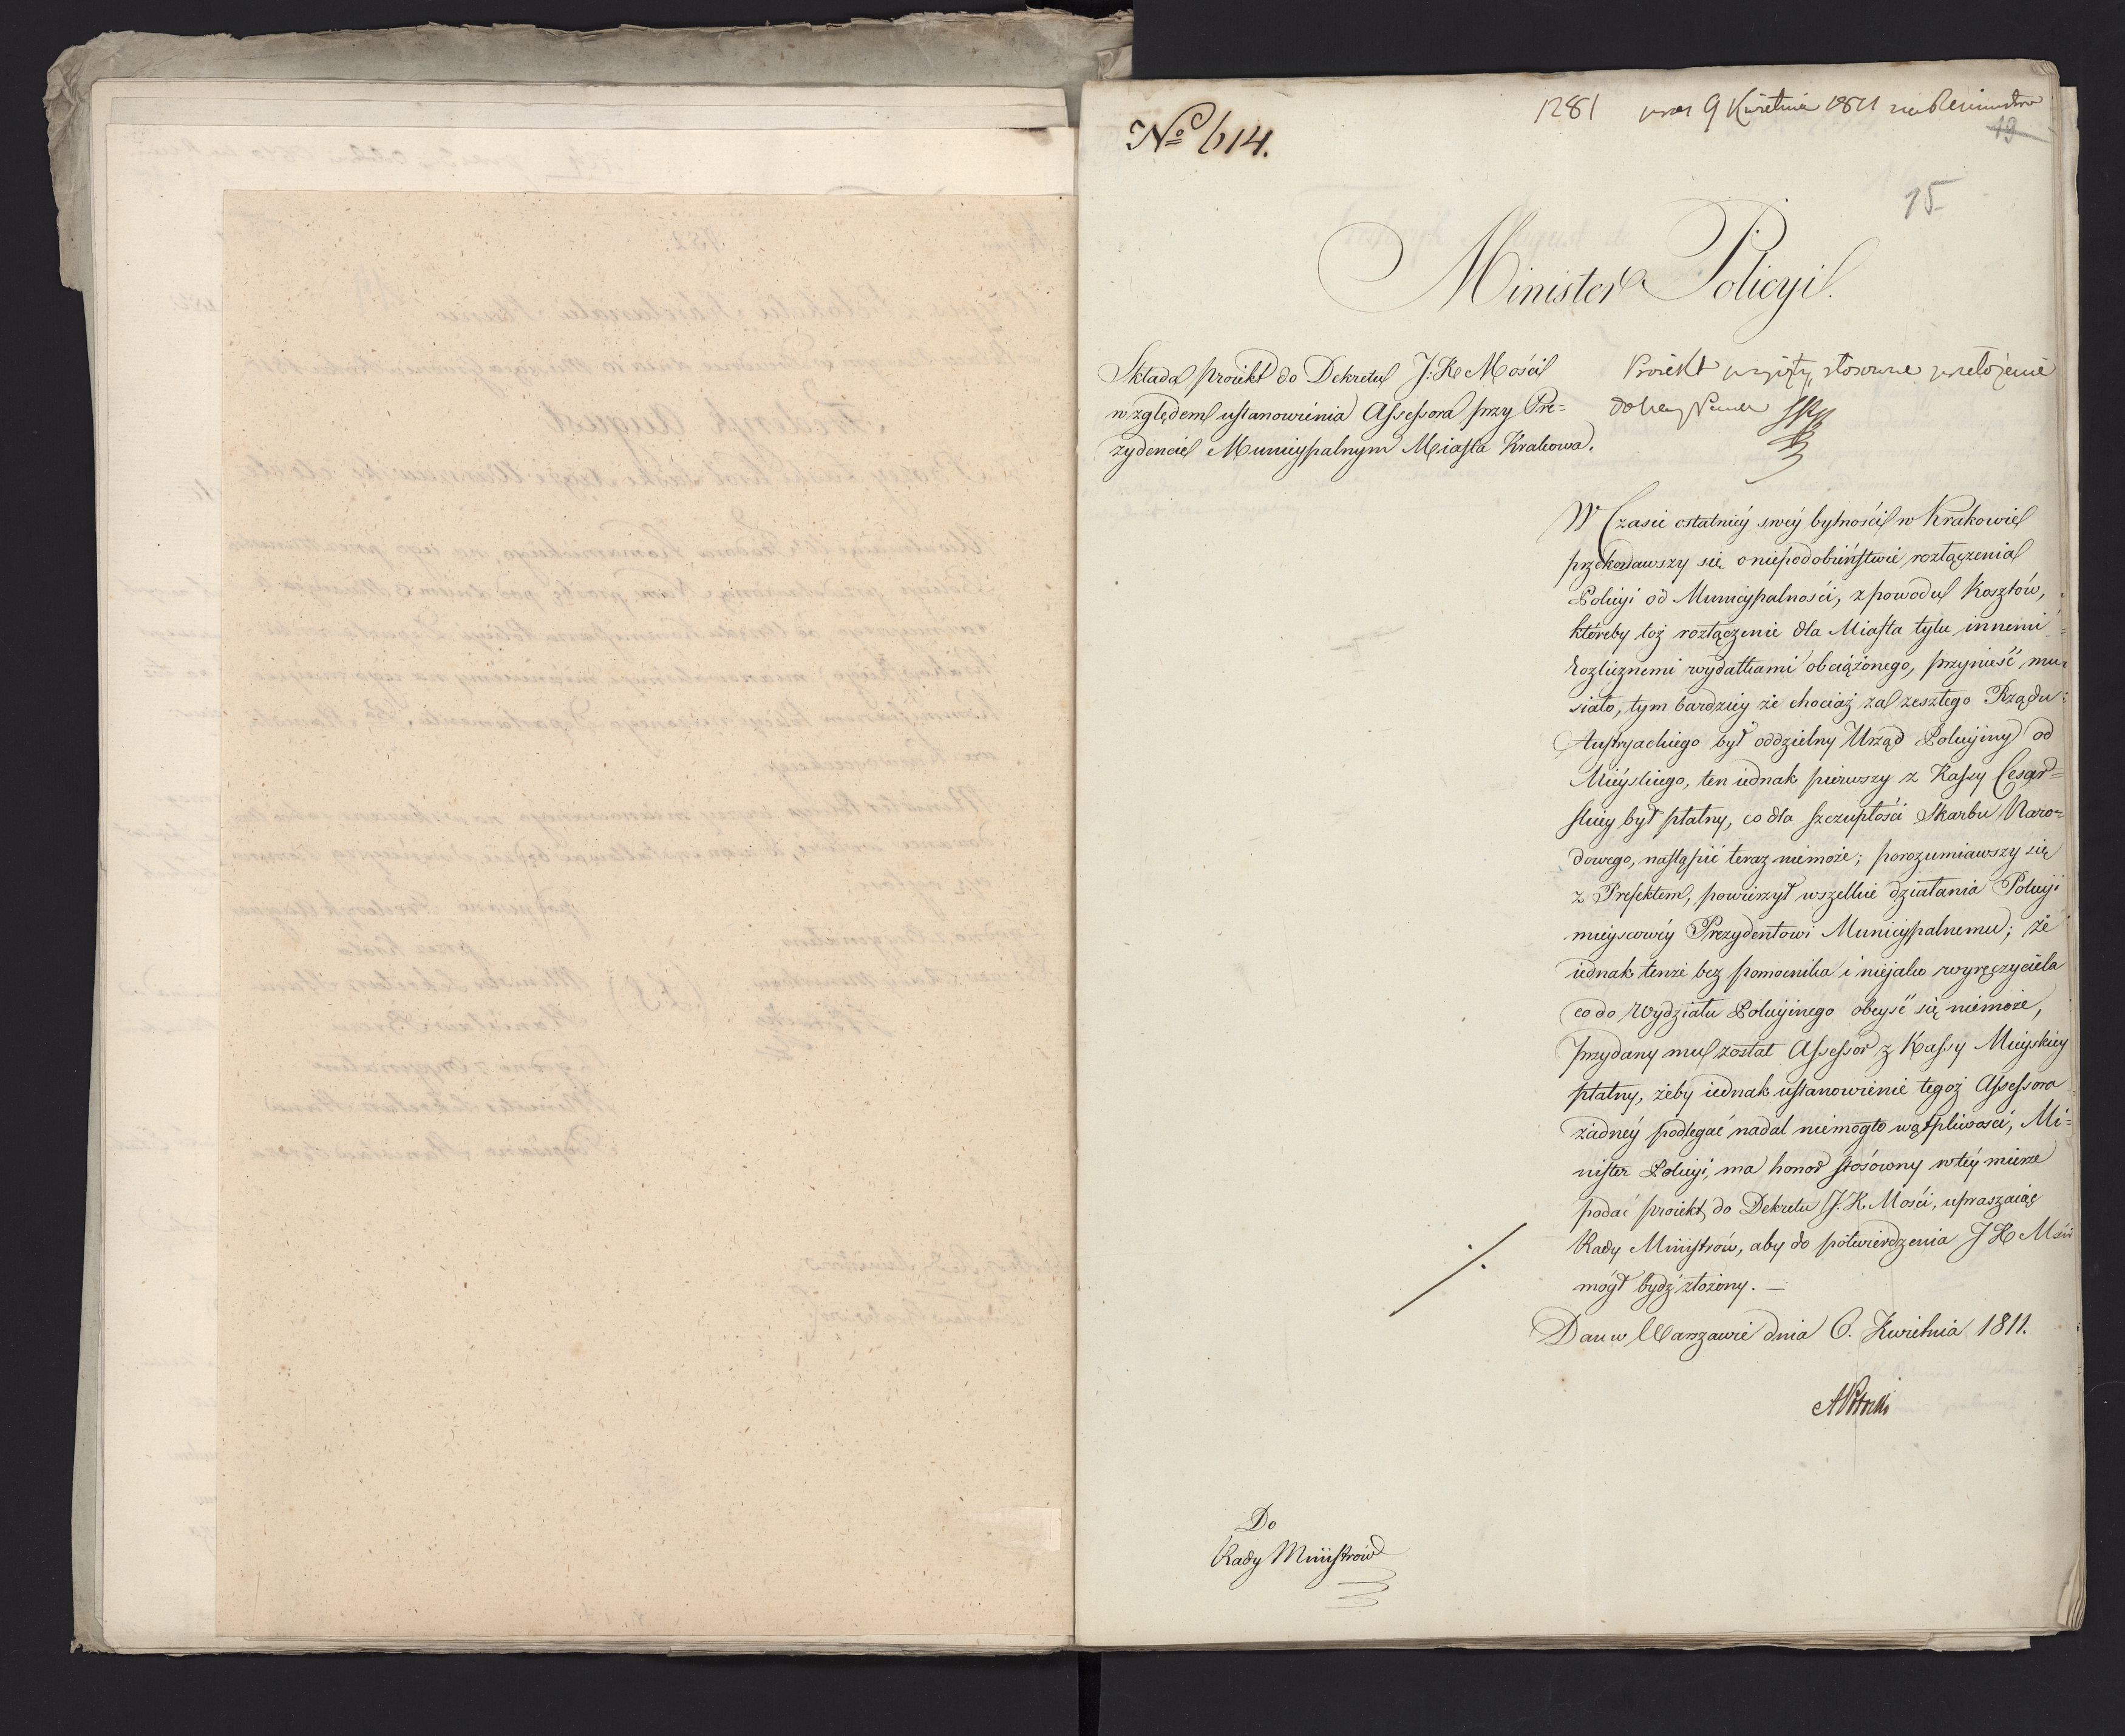 1281 prez 9 Kwietnia 1811
No 614.
19
15
Minister Policyi.
Składa proiekt do Dekretu J: K Mości
względem ustanowienia Assessora przy Pre=
zydencie Municypalnym Miasta Krakowa.
Proiekt przyięty, stosowne przełożenie
do
W Czasie ostatniéy swéy bytności w Krakowie
przekonawszy się o niepodobieństwie rozłączenia
Policyi od Municypalności, z powodu Kosztów,
któreby toż rozłączenie dla Miasta tylu innemi
rozlicznemi wydatkami obciążonego, przynieść mu=
siało, tym bardziey że chociaż za zeszłego Rządu
Austryackiego był oddzielny Urząd Policyiny od
Mieyskiego, ten iednak pierwszy z Kassy Cesar=
skiey był płatny, co dla szczupłości Skarbu Naro=
dowego, nastąpić teraz niemoże; porozumiawszy się
z Prefektem, powierzył wszelkie działania Policyi
mieyscowéy Prezydentowi Municypalnemu; że
iednak tenże bez pomocnika i niejako wyręczyciela
co do Wydziału Policyinego obeyść się niemoże,
przydany mu został Assessor z Kassy Mieyskiey
płatny, żeby iednak ustanowienie tegoż Assessora
żadnéy podlegać nadal niemogło wątpliwości, Mi=
nister Policyi, ma honor stosowny w téy mierze
podać proiekt do Dekretu J. K. Mości, upraszaiąc
Rady Ministrów, aby do potwierdzenia J K Mści
mógł bydź złożony. —
Dan w Warszawie dnia 6. Kwietnia 1811.
APotocki
Do
Rady Ministrów